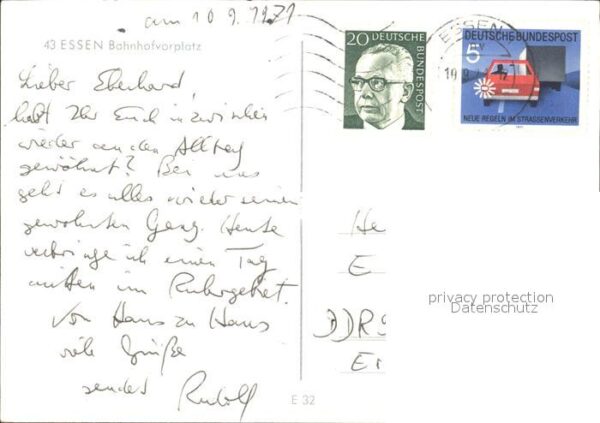 am 10 9.1971
43 ESSEN Bahnhofvorplatz
Lieber Eberhard,
habt Ihr Euch inzwischen
wieder an den Alltag
gewöhnt? Bei uns
geht es alles wieder seinen
gewohnten Gang. Heute
verbringe ich einen Tag
mitten im Ruhrgebiet.
Von Haus zu Haus
viele Grüße
sendet Rudolf
E 32
20
DEUTSCHE BUNDESPOST
ESSEN
DEUTSCHE BUNDESPOST
5
NEUE REGELN IM STRASSENVERKEHR
1971
He
E
DDR
privacy protection
Datenschutz